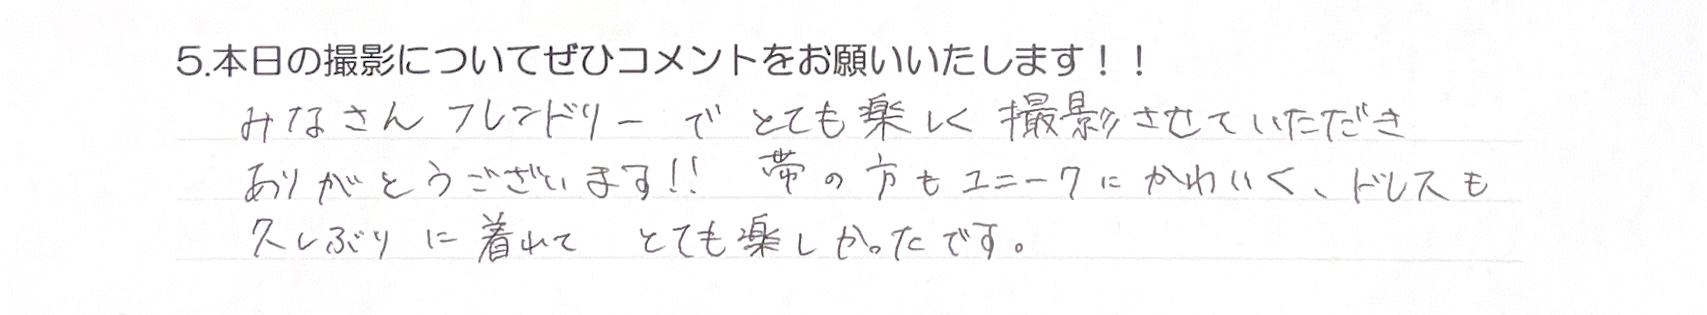 5.本日の撮影についてぜひコメントをお願いいたします！！
みなさんフレンドリーでとても楽しく撮影させていただき
ありがとうございます!! 帯の方もユニークにかわいく、ドレスも
久しぶりに着れて とても楽しかったです。